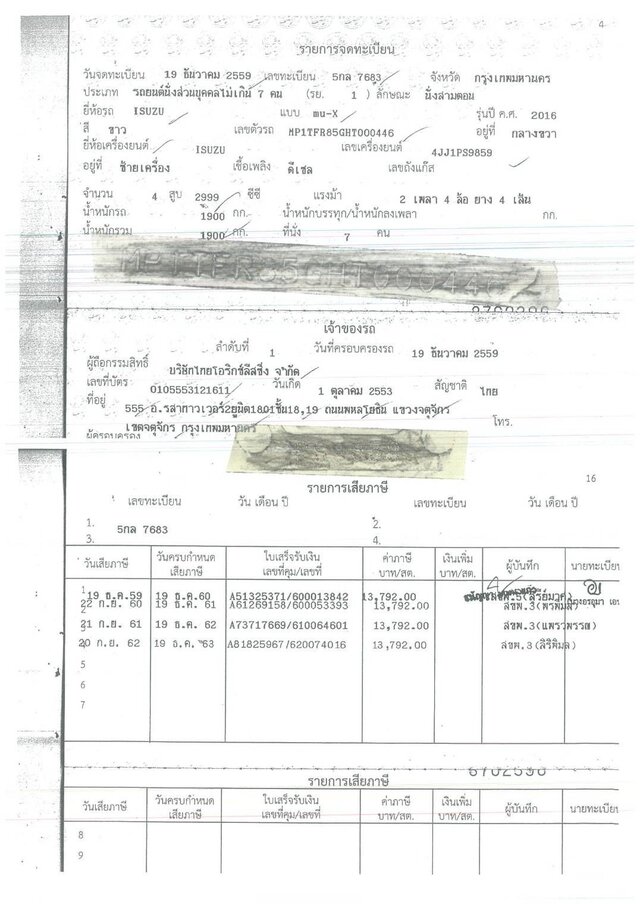 4
รายการจดทะเบียน
วันจดทะเบียน 19 ธันวาคม 2559 เลขทะเบียน 5กล 7683 จังหวัด กรุงเทพมหานคร
ประเภท รถยนต์นั่งส่วนบุคคลไม่เกิน 7 คน (รย. 1) ลักษณะ นั่งสามตอน
ยี่ห้อรถ ISUZU แบบ mu-X รุ่นปี ค.ศ. 2016
สี ขาว เลขตัวรถ MP1TFR85GHT000446 อยู่ที่ กลางขวา
ยี่ห้อเครื่องยนต์ ISUZU เลขเครื่องยนต์ 4JJ1PS9859
อยู่ที่ ซ้ายเครื่อง เชื้อเพลิง ดีเซล เลขถังแก๊ส
จำนวน 4 สูบ 2999 ซีซี แรงม้า 2 เพลา 4 ล้อ ยาง 4 เส้น
น้ำหนักรถ 1900 กก. น้ำหนักบรรทุก/น้ำหนักลงเพลา กก.
น้ำหนักรวม 1900 กก. ที่นั่ง 7 คน
MP1TFR85GHT000446
เจ้าของรถ
ลำดับที่ 1 วันที่ครอบครองรถ 19 ธันวาคม 2559
ผู้ถือกรรมสิทธิ์ บริษัทไทยโอริกซ์ลีสซิ่ง จำกัด
เลขที่บัตร 0105553121611 วันเกิด 1 ตุลาคม 2553 สัญชาติ ไทย
ที่อยู่ 555 อ.รสาทาวเวอร์2ยูนิต1801ชั้น18,19 ถนนพหลโยธิน แขวงจตุจักร
เขตจตุจักร กรุงเทพมหานคร โทร.
ผู้ครอบครอง
16
รายการเสียภาษี
เลขทะเบียน วัน เดือน ปี เลขทะเบียน วัน เดือน ปี
1. 5กล 7683 2.
3. 4.
วันเสียภาษี วันครบกำหนดเสียภาษี ใบเสร็จรับเงินเลขที่คุม/เลขที่ ค่าภาษีบาท/สต. เงินเพิ่มบาท/สต. ผู้บันทึก นายทะเบียน
1 19 ธ.ค.59 19 ธ.ค.60 A51325371/600013842 13,792.00
22 ก.ย. 60 19 ธ.ค. 61 A61269158/600053393 13,792.00 สขพ.3(พรพิมล)
3 21 ก.ย. 61 19 ธ.ค. 62 A73717669/610064601 13,792.00 สขพ.3(แพรวพรรณ)
20 ก.ย. 62 19 ธ.ค. 63 A81825967/620074016 13,792.00 สขพ.3(สิริพิมล)
5
6
7
6702596
รายการเสียภาษี
วันเสียภาษี วันครบกำหนดเสียภาษี ใบเสร็จรับเงินเลขที่คุม/เลขที่ ค่าภาษีบาท/สต. เงินเพิ่มบาท/สต. ผู้บันทึก นายทะเบียน
8
9